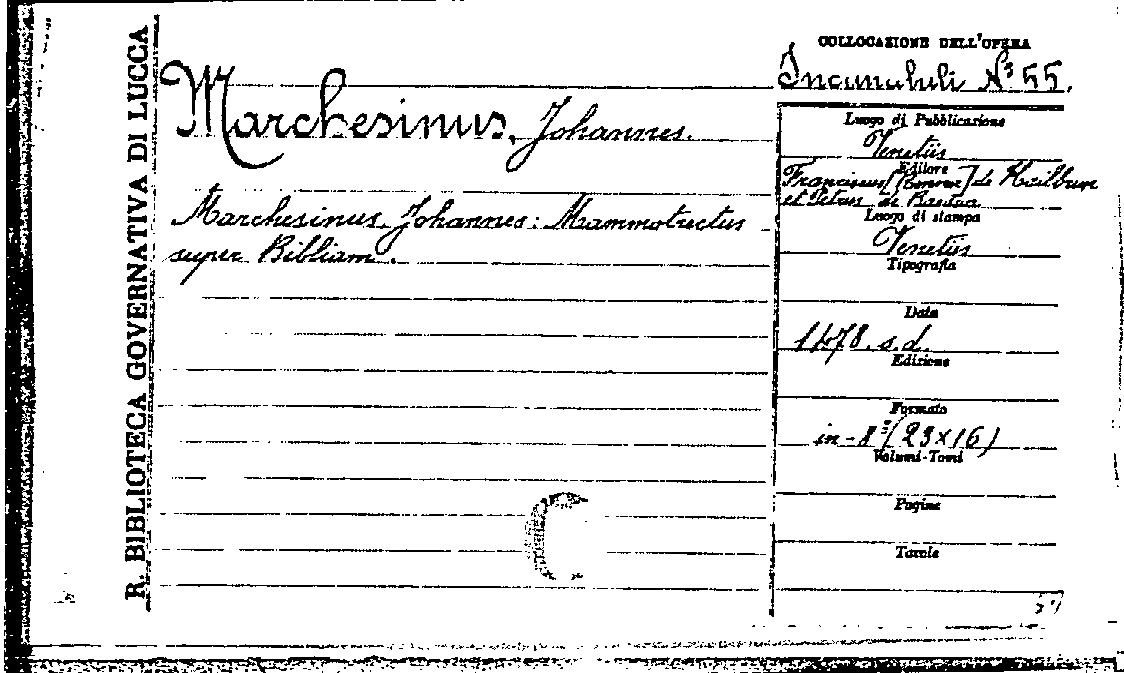 R. BIBLIOTECA GOVERNATIVA DI LUCCA
Marchesinus, Johannes.
Marchesinus, Johannes: Mammotrectus
super Bibliam.
COLLOCAZIONE DELL'OPERA
Incunabuli N° 55.
Luogo di Pubblicazione
Venetiis
Editore
Franciscus [Renner] de Hailbrun
et Petrus de Bartua
Luogo di stampa
Venetiis
Tipografia
Data
1478. s.d.
Edizione
Formato
in-8° (23x16)
Volumi-Tomi
Pagine
Tavole